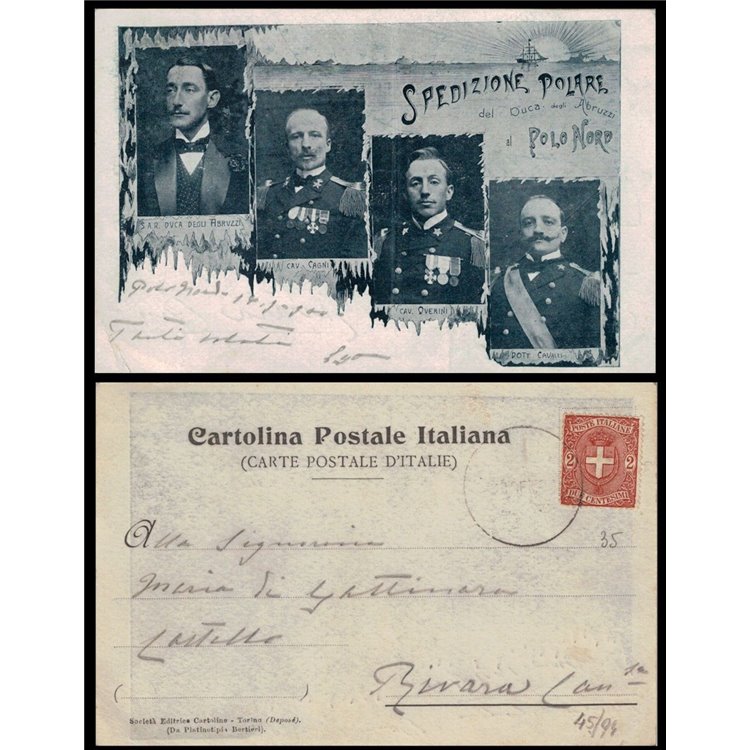 SPEDIZIONE POLARE
del Duca degli Abruzzi
al POLO NORD
S.A.R. DUCA DEGLI ABRUZZI
CAV. CAGNI
CAV. QUERINI
DOTT. CAVALLI
Tanti saluti
Cartolina Postale Italiana
(CARTE POSTALE D'ITALIE)
POSTE ITALIANE
2 2
DUE CENTESIMI
35
Alla Signorina
Maria di Gattinara
Castello
Rivara Can
( )
45/94
Società Editrice Cartoline - Torino (Deposé).
(Da Platinotipia Bertieri).